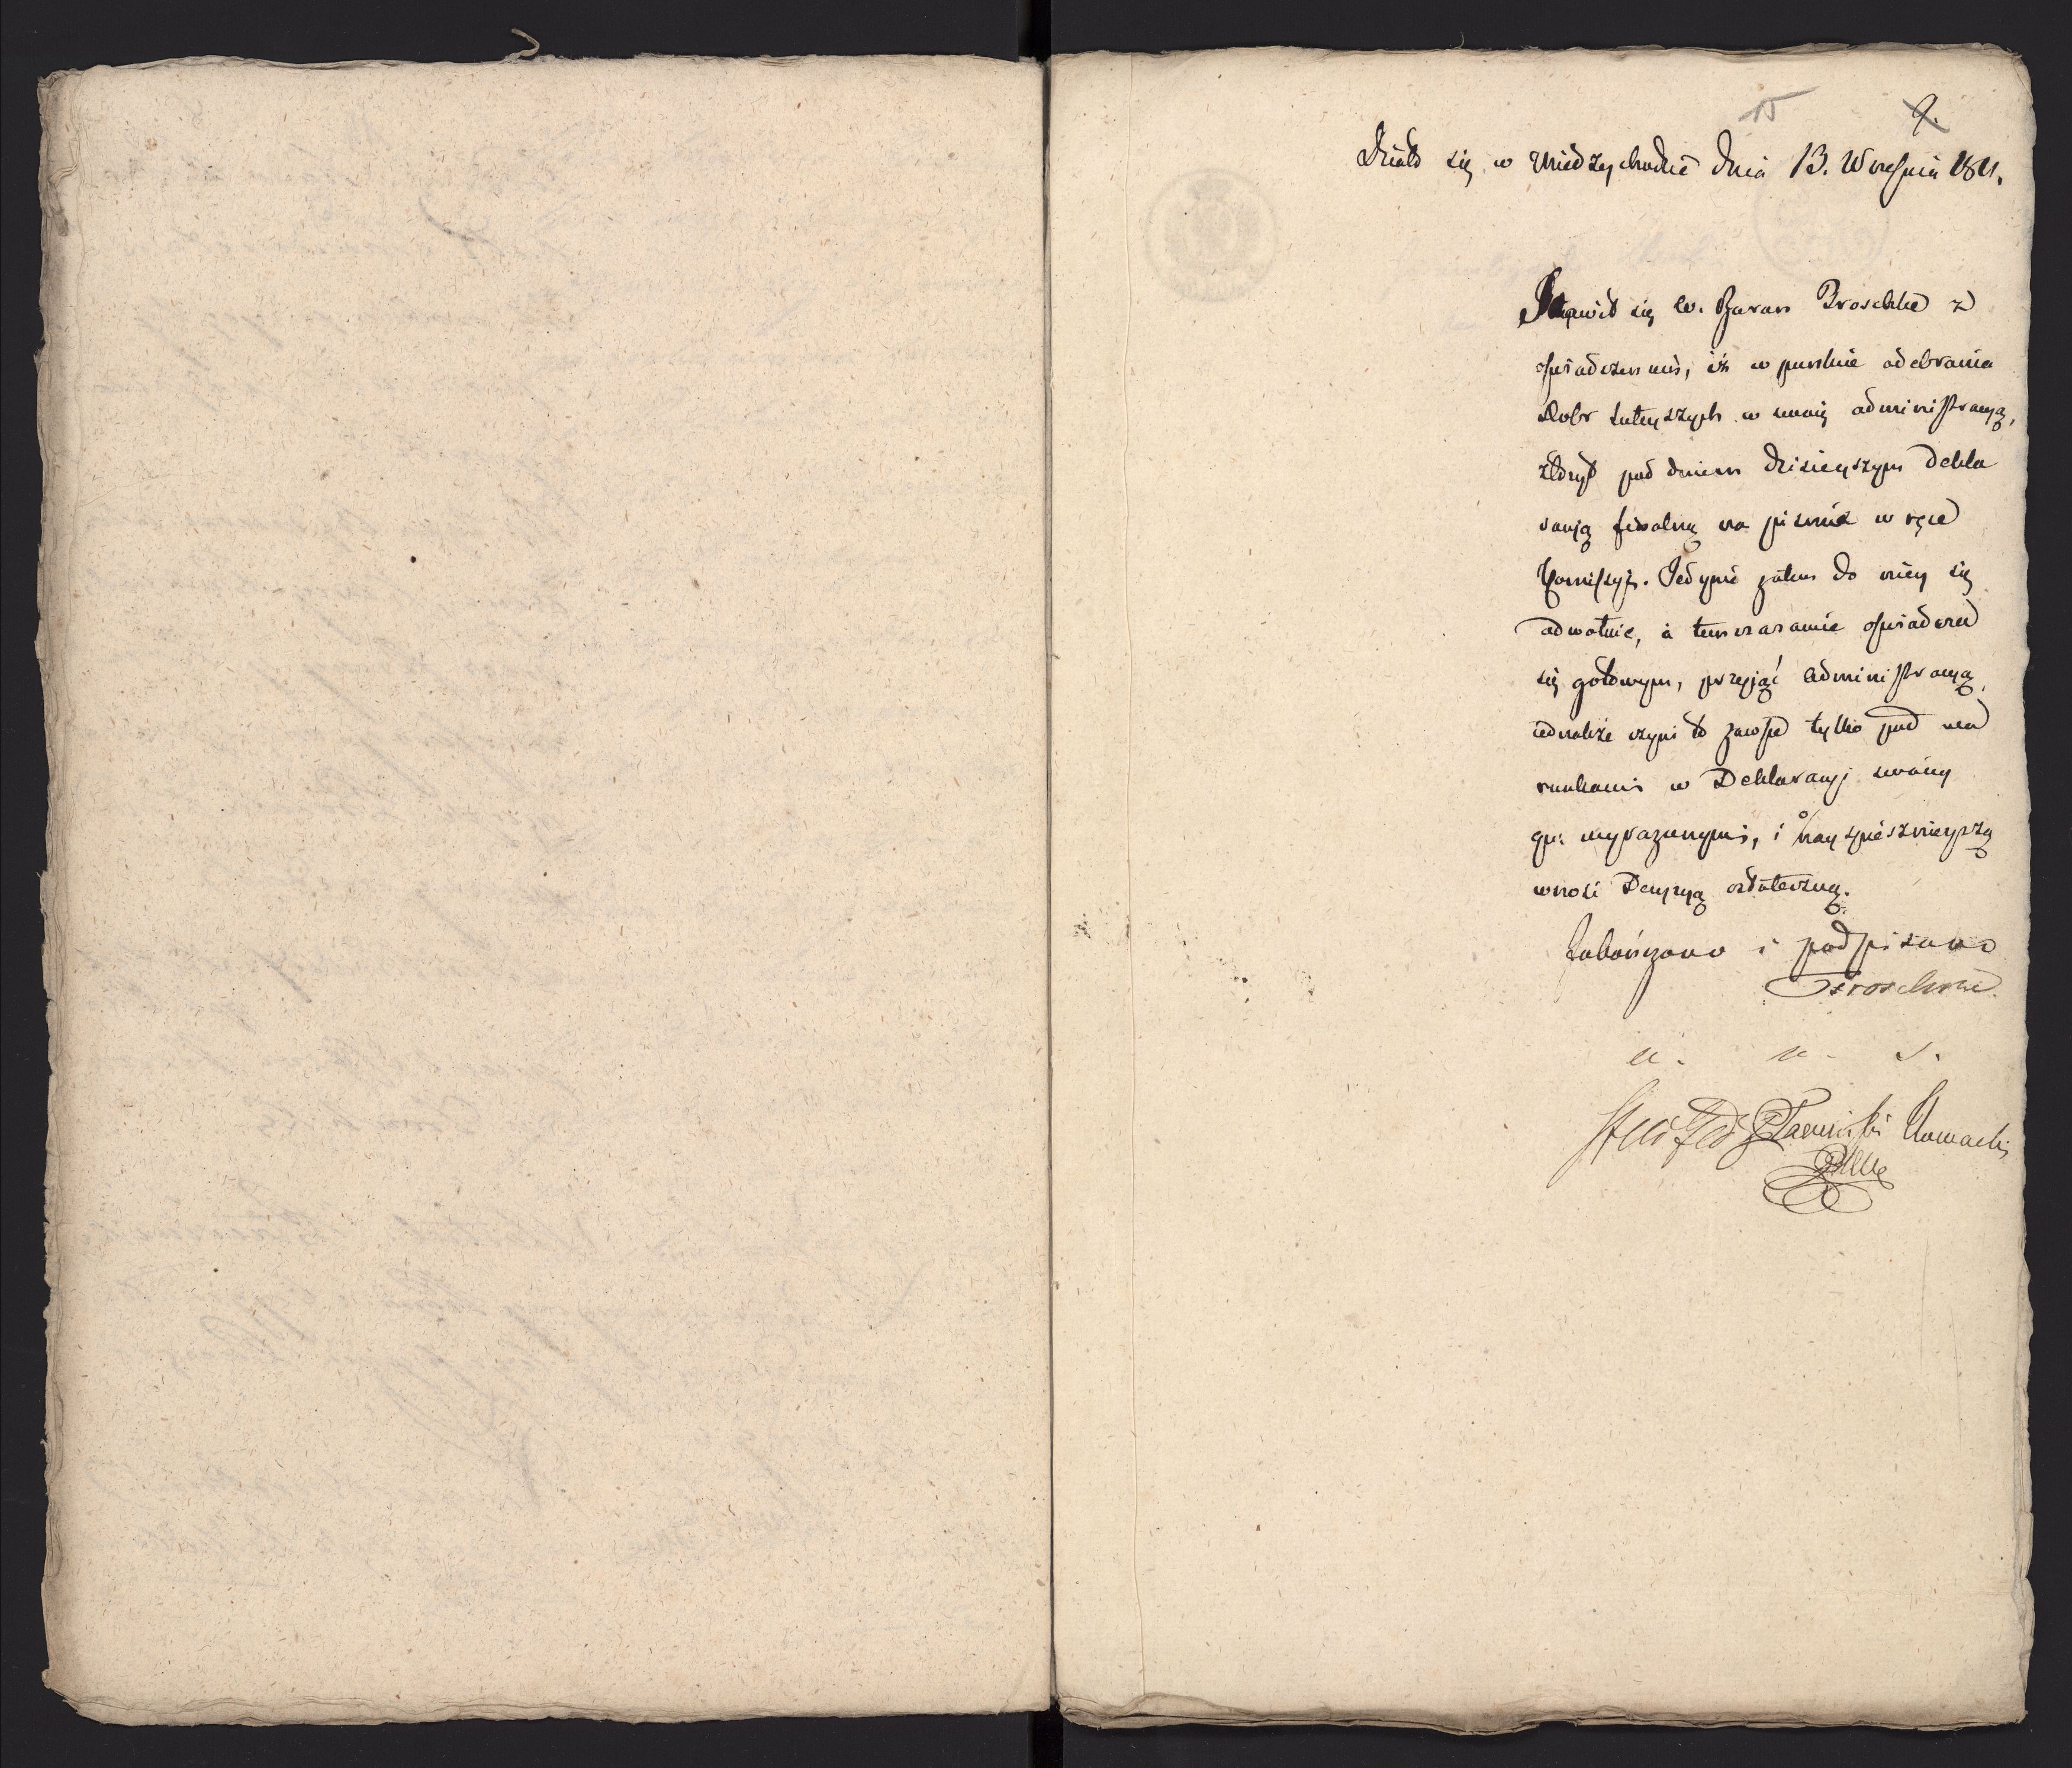 15
9.
Działo się w Międzychodzie dnia 13. Września 1811.
Stawił się W. Baron Troschke z
oświadczeniem, iż w punkcie odebrania
Dobr tuteyszych w swoię administracyą,
złożył pod dniem dzisieyszym Dekla
racyą finalną na piśmie w ręce
Kommissyi. Jedynie zatem do niey się
odwołuie, a temczasowie oświadcza
się gotowym, przyjąć administracyą,
iednakże czyni to zawsze tylko pod wa
runkami w Deklaracyi swoiey
wyrażonymi, i nayspiesznieyszą
wnosi Decyzyą ostateczną.
Zakończono i podpisano
Troschke.
u. s.